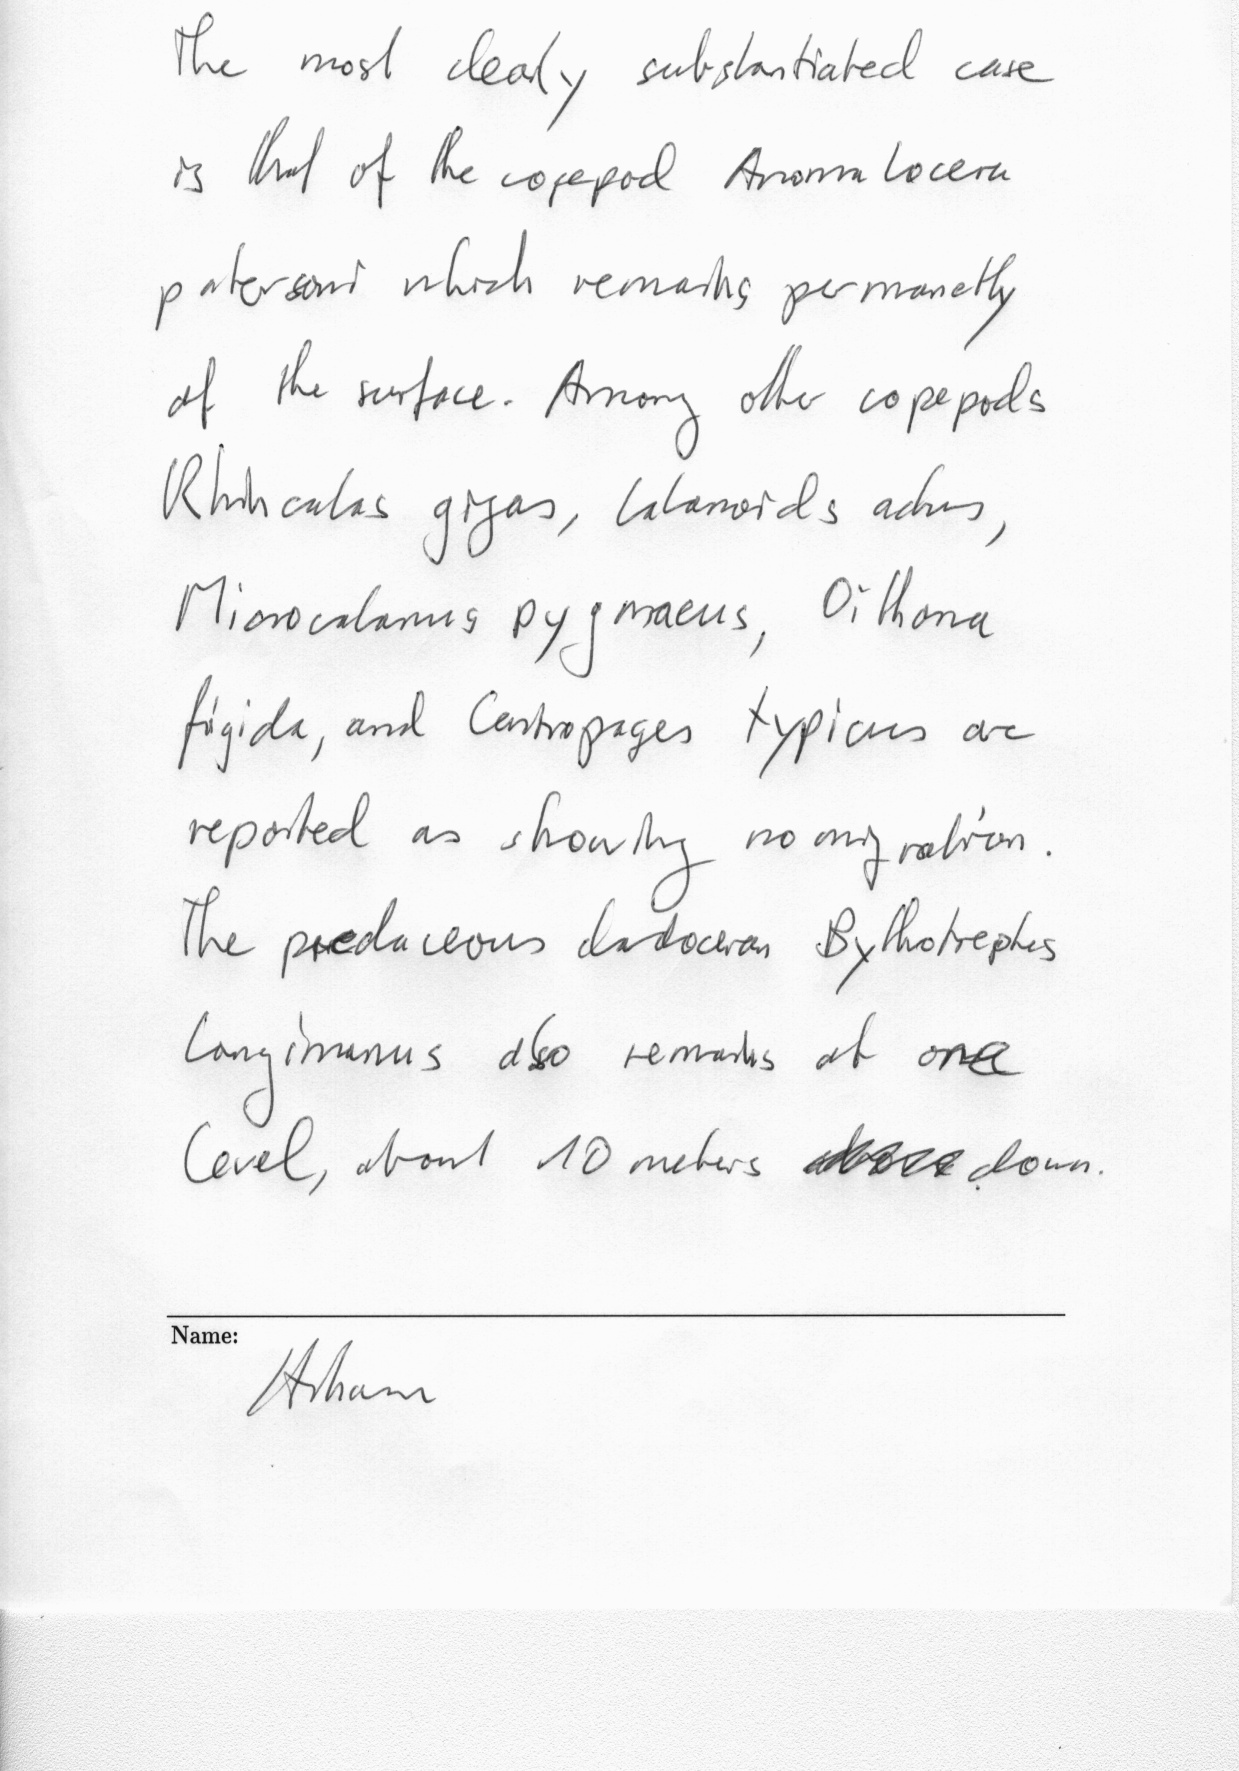 The most clearly substantiated case
is that of the copepod Anomalocera
patersoni which remains permanetly
at the surface. Among other copepods
Rhincalas gigas, Calanoids acutus,
Microcalanus pygmaeus, Oithona
frigida, and Centropages typicus are
reported as showing no migration.
The predaceous cladoceran Bythotrephes
longimanus also remains at one
level, about 10 meters down.
Name: